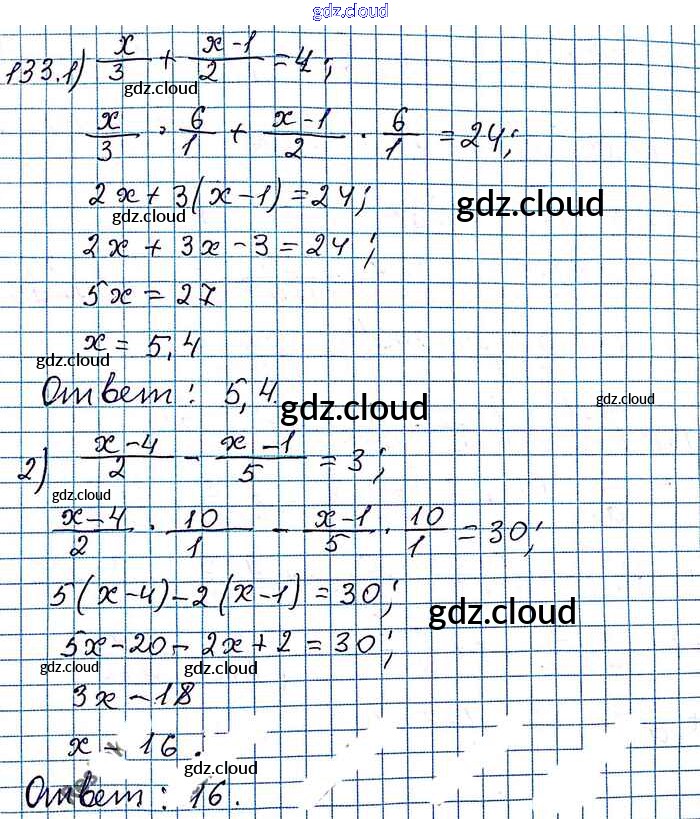 gdz.cloud
133.1) x/3 + (x-1)/2 = 4;
gdz.cloud
x/3 · 6/1 + (x-1)/2 · 6/1 = 24;
2x + 3(x-1) = 24;
gdz.cloud
gdz.cloud
2x + 3x - 3 = 24;
5x = 27
x = 5,4
gdz.cloud
Ответ: 5,4.
gdz.cloud
gdz.cloud
2) (x-4)/2 - (x-1)/5 = 3;
gdz.cloud
(x-4)/2 · 10/1 - (x-1)/5 · 10/1 = 30;
5(x-4) - 2(x-1) = 30;
gdz.cloud
5x - 20 - 2x + 2 = 30;
gdz.cloud
gdz.cloud
3x - 18
x - 16.
gdz.cloud
Ответ: 16.